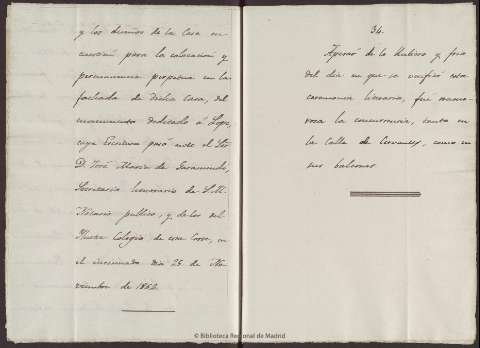 y los dueños de la Casa en
cuestion para la colocacion y
permanencia perpetua en la
fachada de dicha Casa, del
monumento dedicado á Lope,
cuya Escritura pasó ante el Sor
D. José Maria de Garamendi,
Secretario honorario de S.M.
Notario publico, y de los del
Ilustre Colegio de esta Corte, en
el mencionado dia 25 de No-
viembre de 1862.
34.
Apesar de lo lluvioso y frio
del dia en que se verificó esta
ceremonia literaria, fué nume-
rosa la concurrencia, tanto en
la Calle de Cervantes, como en
sus balcones
© Biblioteca Regional de Madrid